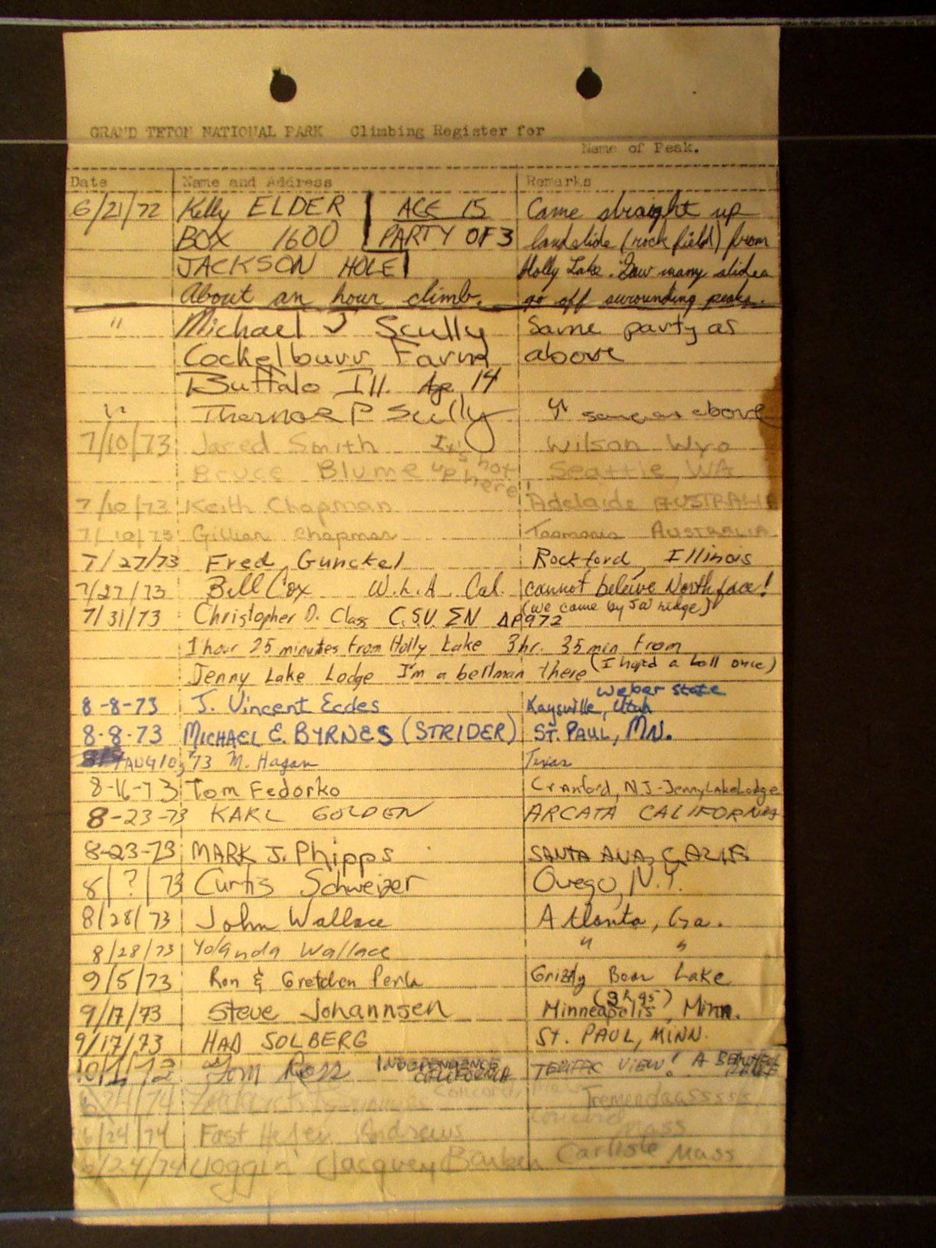 GRAND TETON NATIONAL PARK Climbing Register for
Name of Peak.
Date Name and Address Remarks
6/21/72 Kelly ELDER AGE 15 Came straight up
BOX 1600 PARTY OF 3 landslide (rock field) from
JACKSON HOLE Holly Lake. Saw many slides
About an hour climb. go off surounding peaks.
" Michael J Scully Same party as
Cockelburr Farm above
Buffalo Ill. Age 14
" Thomas P Scully " same as above
7/10/73 Jared Smith It's hot Wilson Wyo
Bruce Blume up here Seattle, WA
7/10/73 Keith Chapman Adelaide AUSTRALIA
7/10/73 Gillian Chapman Tasmania AUSTRALIA
7/27/73 Fred Gunckel Rockford, Illinois
7/27/73 Bill Cox W.L.A. Cal. cannot beleive North face!
(we came by SW ridge)
7/31/73 Christopher D. Class C.S.U. ΣN ΔP972
1 hour 25 minutes from Holly Lake 3 hr. 35 min from
Jenny Lake Lodge I'm a bellman there (I hated a bell once)
Weber State
8-8-73 J. Vincent Eccles Kaysville, Utah
8-8-73 MICHAEL E. BYRNES (STRIDER) ST. PAUL, MN.
AUG 10, '73 M. Hagan Texas
8-16-73 Tom Fedorko Cranford, N.J-Jenny Lake Lodge
8-23-73 KARL GOLDEN ARCATA CALIFORNIA
8-23-73 MARK J. Phipps SANTA ANA, CALIF
8/?/73 Curtis Schweizer Owego, N.Y.
8/28/73 John Wallace Atlanta, Ga.
8/28/73 Yolanda Wallace " "
9/5/73 Ron & Gretchen Perla Grizzly Bear Lake
9/17/73 Steve Johannsen Minneapolis, Minn.
9/17/73 HAD SOLBERG ST. PAUL, MINN.
Tom Ross INDEPENDENCE CALIFORNIA VIEW! A
/74 Concord Tremendaasssss
6/24/74 Fast Andrews Concord Mass
6/24/74 Joggin' Jacquey Carlisle Mass